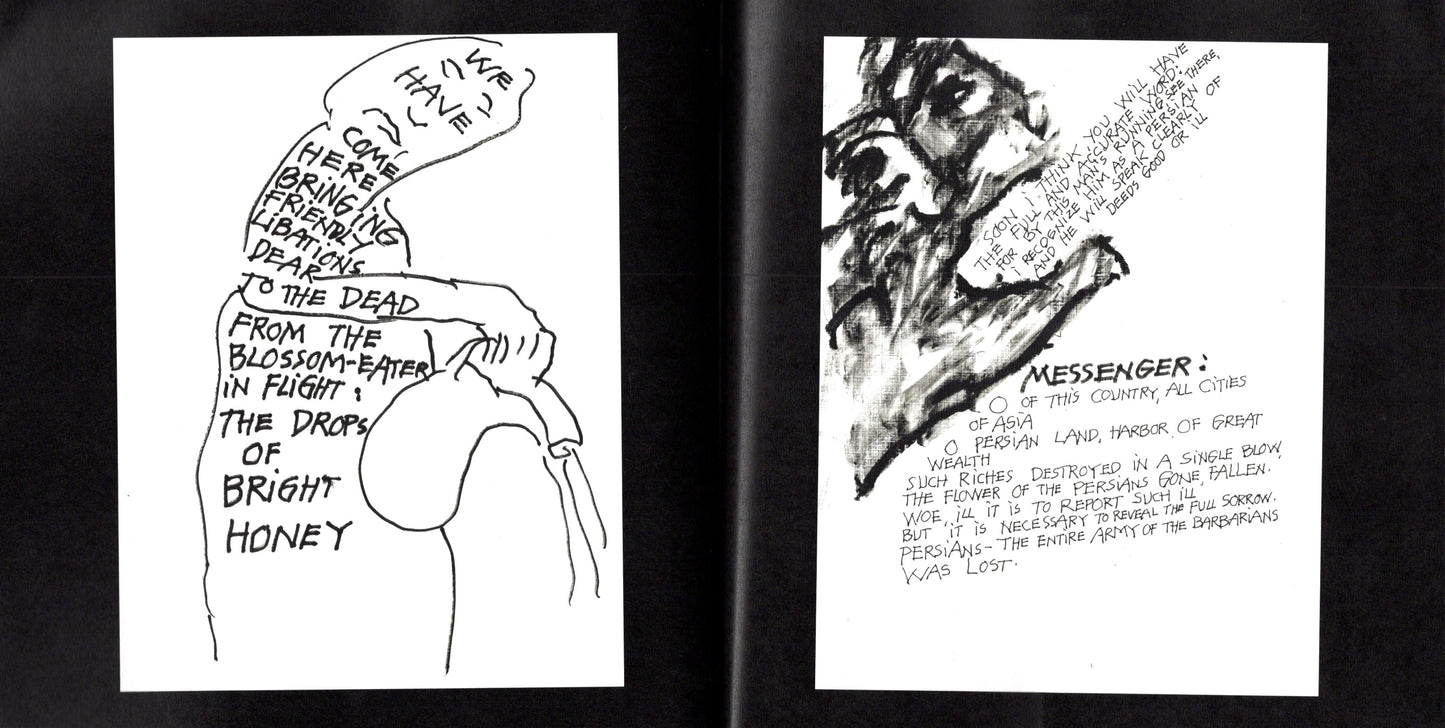 WE
HAVE
COME
HERE
BRINGING
FRIENDLY
LIBATIONS
DEAR
TO THE DEAD
FROM THE
BLOSSOM-EATER
IN FLIGHT:
THE DROPS
OF
BRIGHT
HONEY
SOON I THINK YOU WILL HAVE
THE FULL AND ACCURATE WORD:
FOR BY THIS MAN'S RUNNING SEE THERE,
I RECOGNIZE HIM AS A PERSIAN
AND HE WILL SPEAK CLEARLY OF
DEEDS GOOD OR ILL
MESSENGER:
O OF THIS COUNTRY, ALL CITIES
OF ASIA
O PERSIAN LAND, HARBOR OF GREAT
WEALTH
SUCH RICHES DESTROYED IN A SINGLE BLOW,
THE FLOWER OF THE PERSIANS GONE, FALLEN.
WOE, ILL IT IS TO REPORT SUCH ILL
BUT IT IS NECESSARY TO REVEAL THE FULL SORROW.
PERSIANS - THE ENTIRE ARMY OF THE BARBARIANS
WAS LOST.